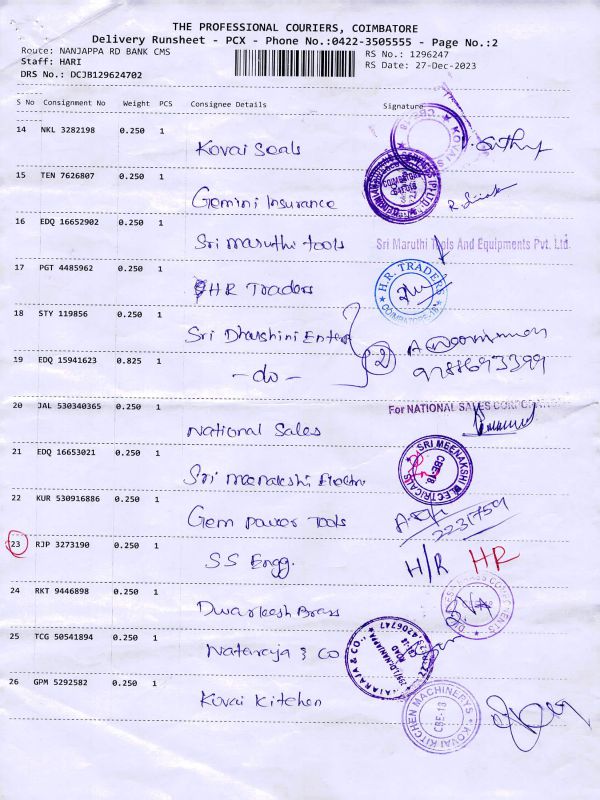 THE PROFESSIONAL COURIERS, COIMBATORE
Delivery Runsheet - PCX - Phone No.:0422-3505555 - Page No.:2
Route: NANJAPPA RD BANK CMS RS No.: 1296247
Staff: HARI RS Date: 27-Dec-2023
DRS No.: DCJB129624702
S No Consignment No Weight PCS Consignee Details Signature
14 NKL 3282198 0.250 1
Kovai Seals
15 TEN 7626807 0.250 1
Gemini Insurance
16 EDQ 16652902 0.250 1
Sri Maruthi Tools
Sri Maruthi Tools And Equipments Pvt. Ltd.
17 PGT 4485962 0.250 1
HR Traders
H.R. TRADERS
COIMBATORE-18
18 STY 119856 0.250 1
Sri Dharshini Enter
2
19 EDQ 15941623 0.825 1
- do -
9788693399
20 JAL 530340365 0.250 1
National Sales
For NATIONAL SALES CORPORATION
21 EDQ 16653021 0.250 1
Sri Meenakshi Electri
SRI MEENAKSHI ELECTRICALS
CBE-18
22 KUR 530916886 0.250 1
Gem Power Tools
2231759
23 RJP 3273190 0.250 1
SS Engg.
H/R HR
24 RKT 9446898 0.250 1
Dwarkesh Brass
25 TCG 50541894 0.250 1
Nataraja & Co
NATARAJA & CO.
26 GPM 5292582 0.250 1
Kovai Kitchen
KOVAI KITCHEN MACHINERYS
CBE-18